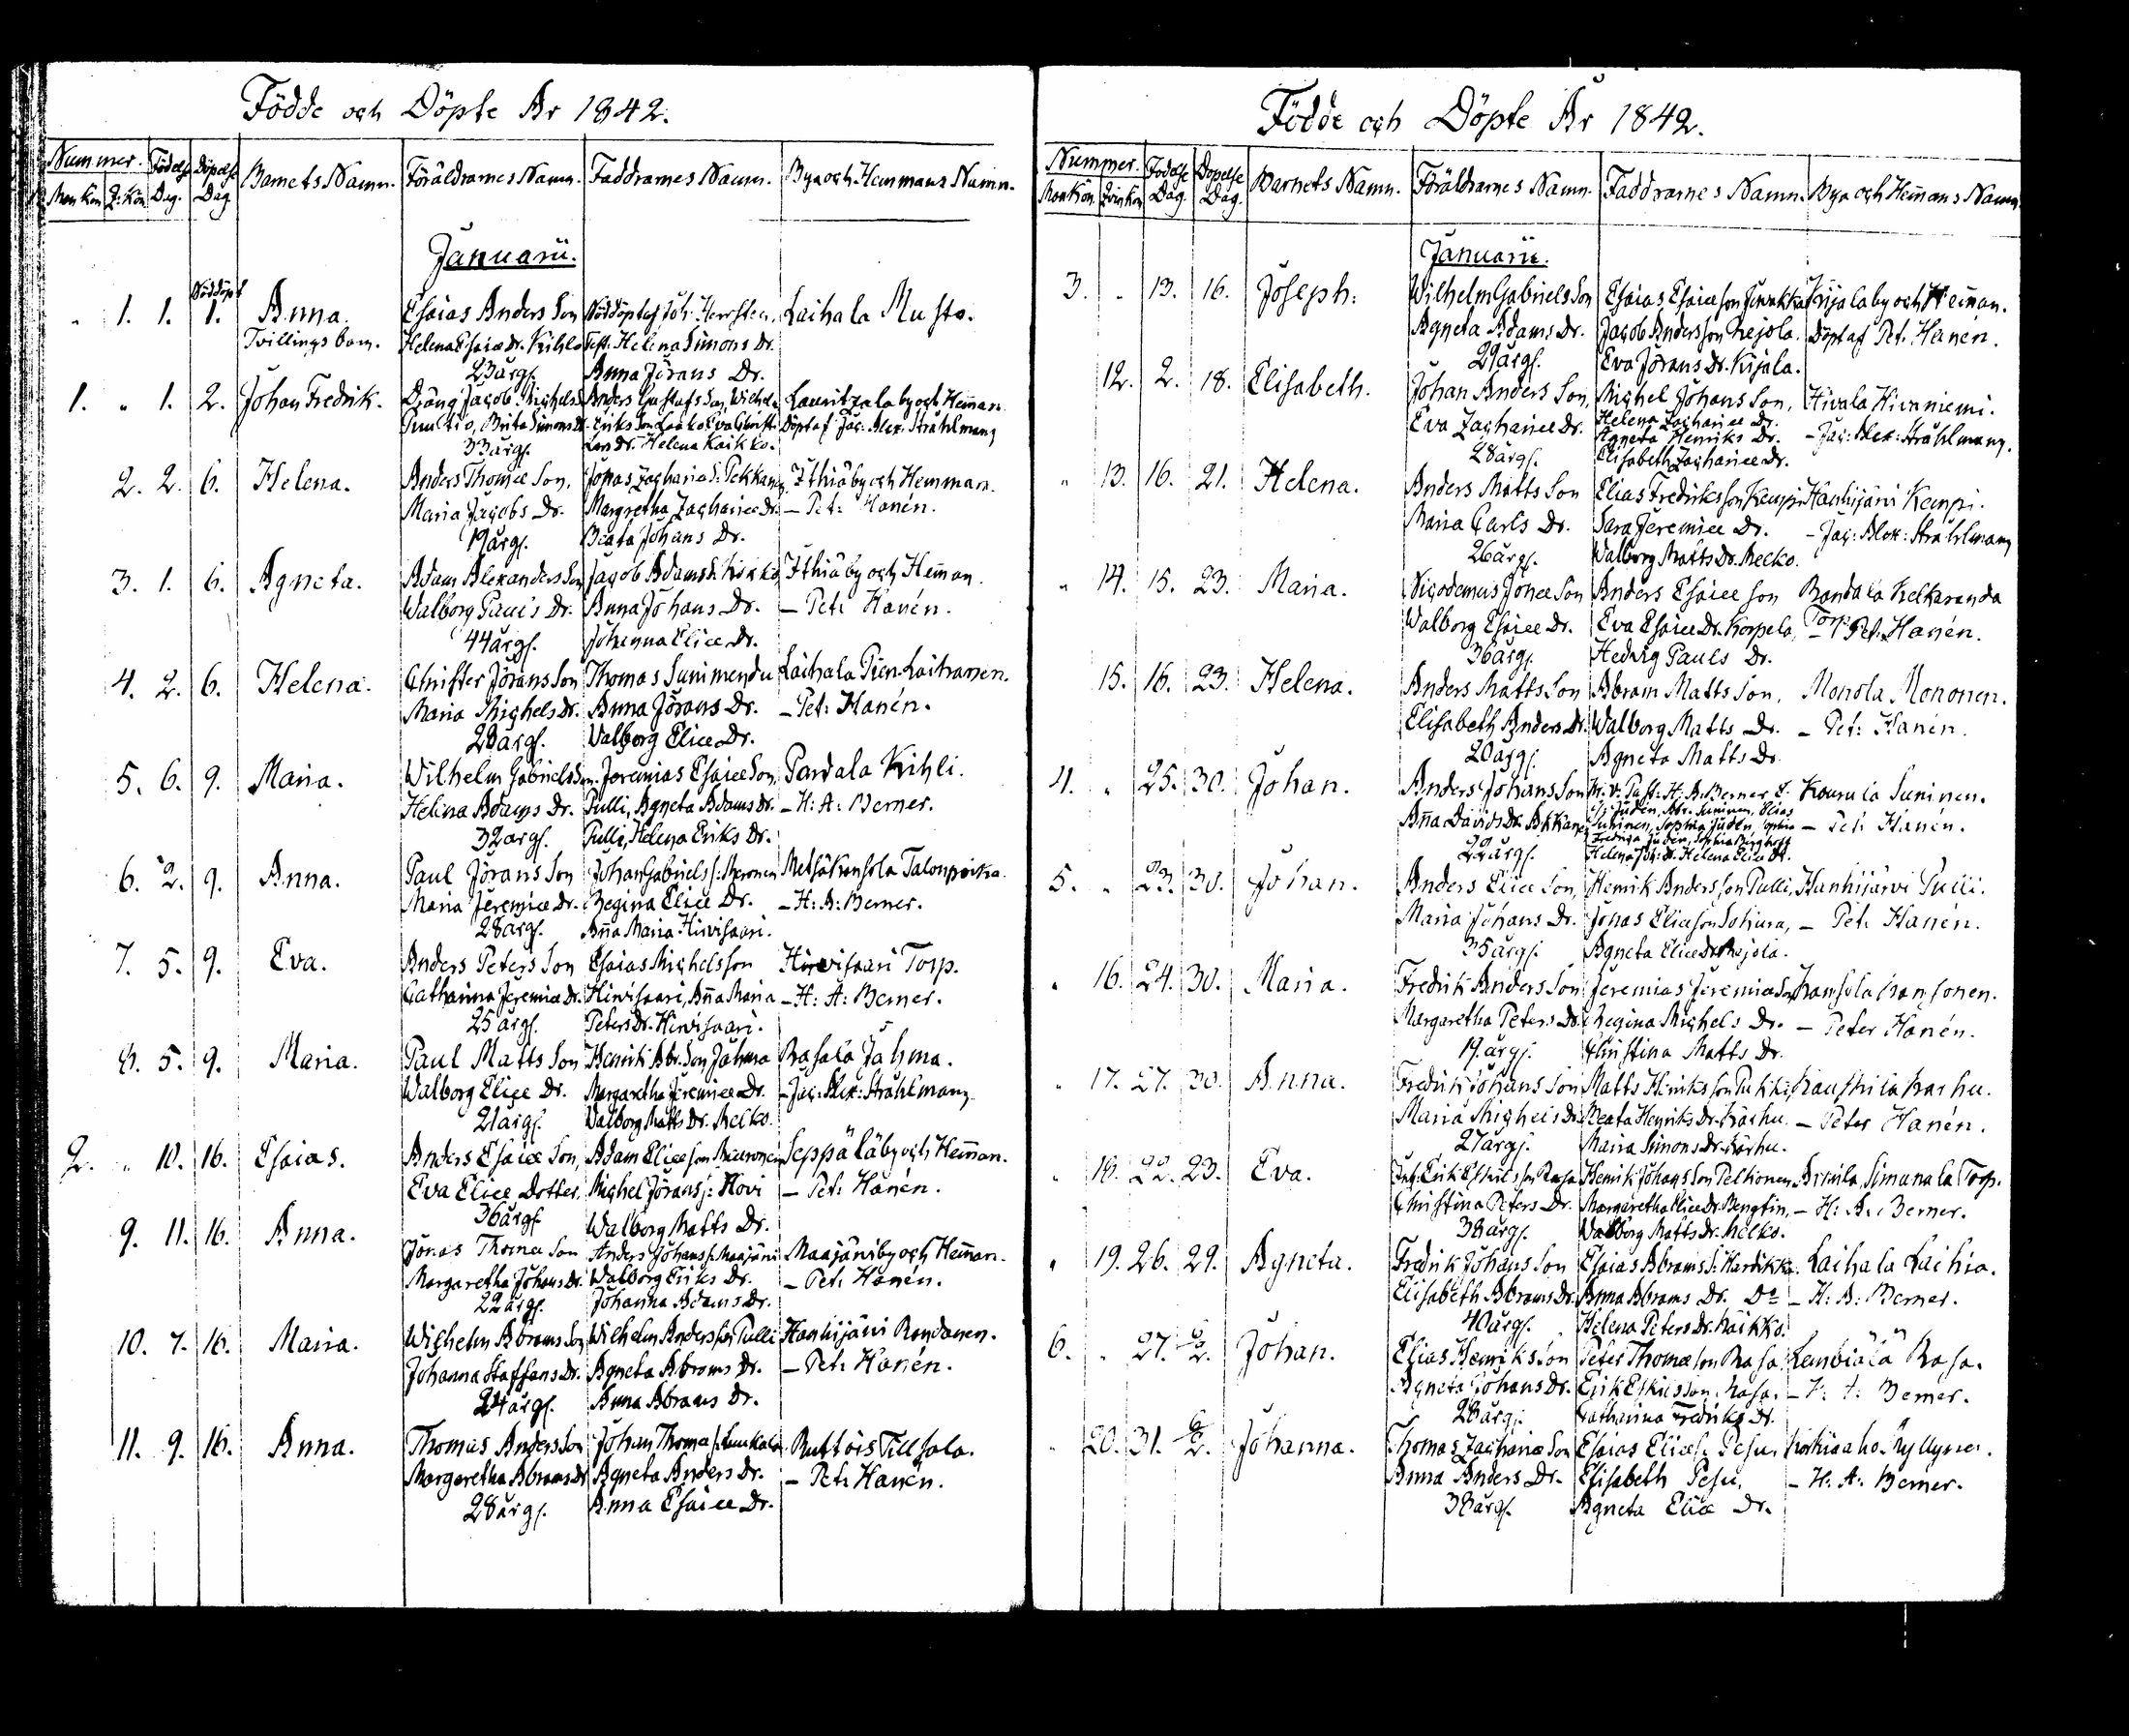 Födde och Döpte År 1842.
Nummer. Födelse Döpelse Barnets Namn. Föräldrarnes Namn. Faddrarnes Namn. Bya och Hemmans Namn.
Mankön Q:kön Dag. Dag
Januarii.
Nöddöpt
" 1. 1. 1. Anna. Esaias Anders Son Nöddöpt af Joh: Laihala Musto.
Tvillings barn. Helena Esaiæ Dr. Helena Simons Dr.
23 årg. Anna Jörans Dr.
1. " 1. 2. Johan Fredrik. Dräng Jacob Michels Anders Gustafs Son Lauritzala by och Heman
Brita Simons Dr. Eriks Son Döpt af Jac: Alex: Stråhlmann
33 årg. Dr. Helena Kaikko.
2. 2. 6. Helena. Anders Thomæ Son, Jonas Zachariæ S. Pekkanen Ihtiä by och Hemman.
Maria Jacobs Dr. Margretha Zachariæ Dr. – Pet: Hanén.
19 årg. Beata Johans Dr.
3. 1. 6. Agneta. Adam Alexanders Son Jacob Adams S. Kokko Ihtiä by och Heman.
Walborg Pauls Dr. Anna Johans Dr. – Pet: Hanén.
44 årg. Johanna Eliæ Dr.
4. 2. 6. Helena. Christer Jörans Son Thomas Laihala Pien-Laihanen.
Maria Michels Dr. Anna Jörans Dr. – Pet: Hanén.
28 årg. Valborg Eliæ Dr.
5. 6. 9. Maria. Wilhelm Gabriels Son. Jeremias Esaiæ Son Partala Kihli.
Helena Adams Dr. Pulli, Agneta Adams Dr. – H: A: Berner.
32 årg. Pulli, Helena Eriks Dr.
6. 2. 9. Anna. Paul Jörans Son Johan Gabriels S: Talonpoika
Maria Jeremiæ Dr. Regina Eliæ Dr. – H: A: Berner.
28 årg. Aña Maria Hirvisaari.
7. 5. 9. Eva. Anders Peters Son Esaias Michelsson Hirvisaari Torp.
Catharina Jeremiæ Dr. Hirvisaari, Aña Maria – H: A: Berner.
25 årg. Peters Dr. Hirvisaari.
8. 5. 9. Maria. Paul Matts Son Henrik Abr. Son Jahma Rasala Jahma.
Walborg Eliæ Dr. Margaretha Jeremiæ Dr. – Jac: Alex: Stråhlmann
21 årg. Valborg Matts Dr. Melko.
2. " 10. 16. Esaias. Anders Esaiæ Son, Adam Eliæ son Seppälä by och Heman.
Eva Eliæ Dotter, Michel Jörans S: Hovi – Pet: Hanén.
36 årg. Walborg Matts Dr.
9. 11. 16. Anna. Jonas Thomæ Son Anders Johans S. Maajärvi Maajärvi by och Heman.
Margaretha Johans Dr. Walborg Eriks Dr. – Pet: Hanén.
22 årg. Johanna Adams Dr.
10. 7. 16. Maria. Wilhelm Abrams Son Wilhelm Andersson Pulli Hanhijärvi Rondanen.
Johanna Staffans Dr. Agneta Abrams Dr. – Pet: Hanén.
24 årg. Anna Abrams Dr.
11. 9. 16. Anna. Thomas Anders Son Johan Thomæ S. Ruttois Tillsala.
Margaretha Abrams Dr Agneta Anders Dr. – Pet: Hanén.
28 årg. Anna Esaiæ Dr.
Födde och Döpte År 1842.
Nummer. Födelse Döpelse Barnets Namn. Föräldrarnes Namn. Faddrarnes Namn. Bya och Hemans Namn.
Mankön Qvinkön Dag. Dag.
Januarii.
3. " 13. 16. Joseph: Wilhelm Gabriels Son Esaias Esaiæ son Kirjala by och Heman.
Agneta Adams Dr. Jacob Andersson Rejola. Döpt af Pet: Hanén.
29 årg. Eva Jörans Dr. Kirjala.
12. 2. 18. Elisabeth. Johan Anders Son, Michel Johans Son, Hivala Hivaniemi.
Eva Zachariæ Dr. Helena Zachariæ Dr.
Agneta Henriks Dr. – Jac: Alex: Stråhlmann.
28 årg. Elisabeth Zachariæ Dr.
" 13. 16. 21. Helena. Anders Matts Son Elias Fredriksson Kemppi Hanhijärvi Kemppi.
Maria Carls Dr. Sara Jeremiæ Dr. – Jac: Alex: Stråhlmann
26 årg. Walborg Matts Dr. Melko.
" 14. 15. 23. Maria. Nicodemus Jonæ Son Anders Esaiæ son Rondala Kelkaranda
Walborg Esaiæ Dr. Eva Esaiæ Dr. Korpela, Torp – Pet: Hanén.
36 årg. Hedvig Pauls Dr.
15. 16. 23. Helena. Anders Matts Son Abram Matts Son, Monola Mononen.
Elisabeth Anders Dr. Walborg Matts Dr. – Pet: Hanén.
20 årg. Agneta Matts Dr.
4. " 25. 30. Johan. Anders Johans Son H. A. Berner Suninen.
Aña Davids Dr. – Pet: Hanén.
22 årg. Helena Eliæ Dr.
5. " 23. 30. Johan. Anders Eliæ Son, Henrik Andersson Pulli, Hanhijärvi Pulli.
Maria Johans Dr. Jonas Eliæ son – Pet: Hanén.
35 årg. Agneta Eliæ Dr. Rejola.
" 16. 24. 30. Maria. Fredrik Anders Son Jeremias Jeremiæ Son Kansola Kansonen.
Margaretha Peters Dr. Regina Michels Dr. – Peter Hanén.
19. årg. Christina Matts Dr.
" 17. 27. 30. Anna. Fredrik Johans Son Matts Henriksson Karhu.
Maria Michels Dr. Beata Henriks Dr. Karhu. – Peter Hanén.
27 årg. Maria Simons Dr. Karhu.
" 18. 22. 23. Eva. Erik Eskilsson Rasa Henrik Johans Son Peltonen Simanala Torp.
Christina Peters Dr. Margaretha Eliæ Dr. – H: A. Berner.
38 årg. Walborg Matts Dr. Melko.
" 19. 26. 29. Agneta. Fredrik Johans Son Esaias Abrams S: Hardikka. Laihala Laihia.
Elisabeth Abrams Dr. Anna Abrams Dr. Do – H: A: Berner.
40 årg. Helena Peters Dr. Kaikko.
6. " 27. 6/2. Johan. Elias Henriks Son Peter Thomæ son Rasa Lembiälä Rasa.
Agneta Johans Dr. Erik Eskilsson Rasa. – H: A: Berner.
28 årg. Catharina Fredriks Dr.
" 20. 31. 6/2. Johanna. Thomas Zachariæ Son Esaias Eliæ S. Pesu, Korkiaaho Kyllynen.
Anna Anders Dr. Elisabeth Pesu, – H. A. Berner.
38 årg. Agneta Eliæ Dr.